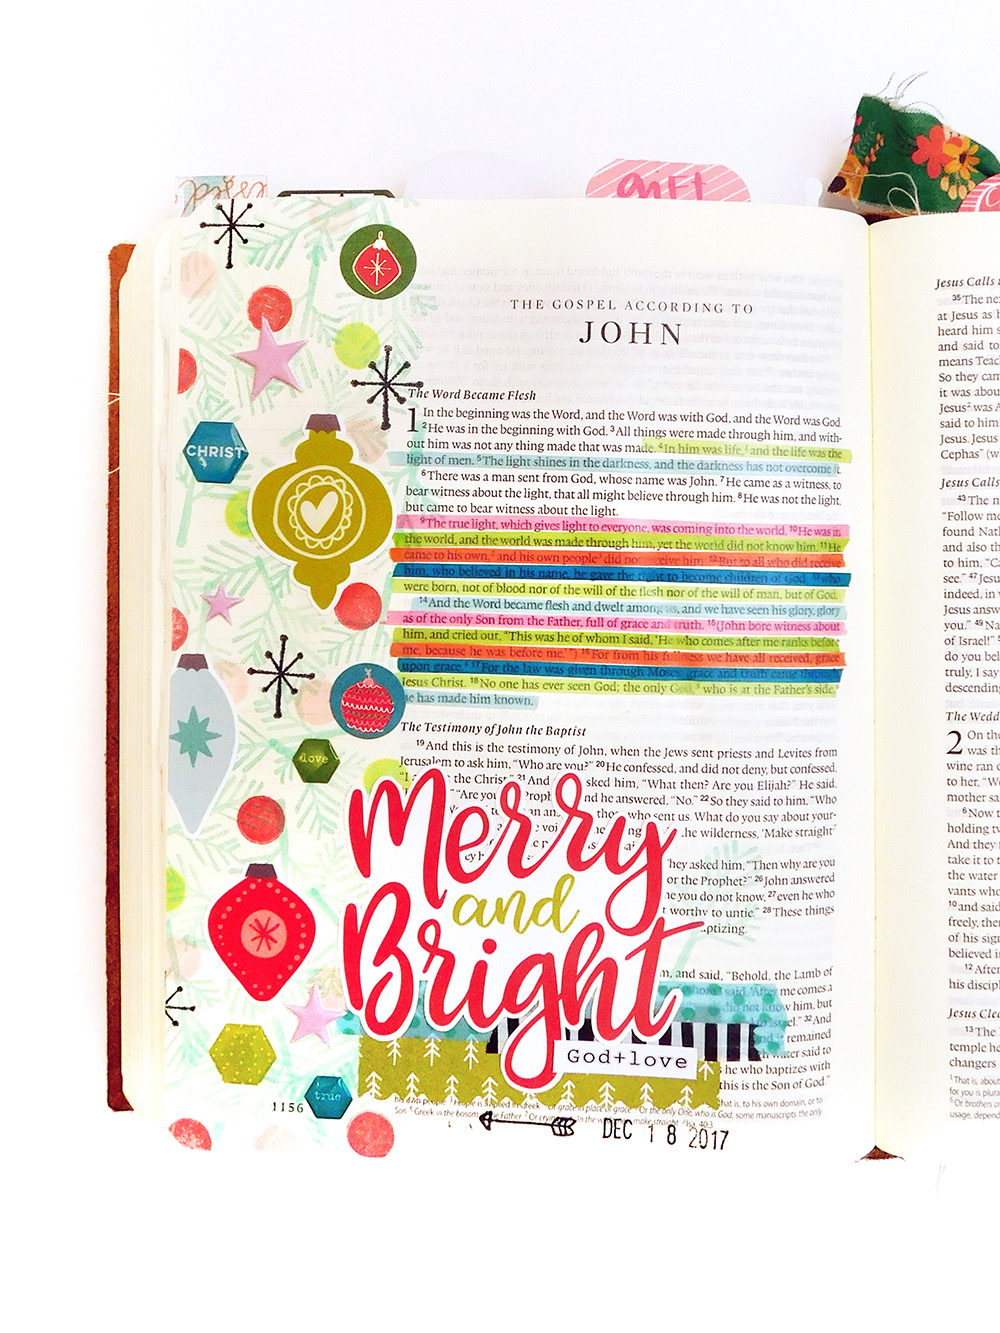 gift
THE GOSPEL ACCORDING TO
JOHN
The Word Became Flesh
1 In the beginning was the Word, and the Word was with God, and the Word was God.
2 He was in the beginning with God. 3 All things were made through him, and with-
out him was not any thing made that was made. 4 In him was life, 1 and the life was the
light of men. 5 The light shines in the darkness, and the darkness has not overcome it.
6 There was a man sent from God, whose name was John. 7 He came as a witness, to
bear witness about the light, that all might believe through him. 8 He was not the light,
but came to bear witness about the light.
9 The true light, which gives light to everyone, was coming into the world. 10 He was in
the world, and the world was made through him, yet the world did not know him. 11 He
came to his own, 2 and his own people 3 did not receive him. 12 But to all who did receive
him, who believed in his name, he gave the right to become children of God, 13 who
were born, not of blood nor of the will of the flesh nor of the will of man, but of God.
14 And the Word became flesh and dwelt among us, and we have seen his glory, glory
as of the only Son from the Father, full of grace and truth. 15 (John bore witness about
him, and cried out, "This was he of whom I said, 'He who comes after me ranks before
me, because he was before me.'") 16 For from his fullness we have all received, grace
upon grace. 17 For the law was given through Moses; grace and truth came through
Jesus Christ. 18 No one has ever seen God; the only God, 5 who is at the Father's side, 6
he has made him known.
The Testimony of John the Baptist
19 And this is the testimony of John, when the Jews sent priests and Levites from
Jerusalem to ask him, "Who are you?" 20 He confessed, and did not deny, but confessed,
the Christ." 21 And sked him, "What then? Are you Elijah?" He said,
"Are you Proph nd he answered, "No." 22 So they said to him, "Who
who sent us. What do you say about your-
the wilderness, 'Make straight
hey asked him, "Then why are you
or the Prophet?" 26 John answered
ne you do not know, 27 even he who
t worthy to untie." 28 These things
aptizing.
m, and said, "Behold, the Lamb of
After me comes a
know him, but
Israel." 32 And
remained
water said to
he who baptizes with
this is the Son of God."
CHRIST
love
true
Merry
and
Bright
God+love
1156
DEC 18 2017
Jesus Calls
35 The ne
at Jesus as h
heard him s
and said to
means Teac
So they cam
it was abou
Jesus 2 was A
said to him
Jesus. Jesus
Cephas" (w
Jesus Calls
43 The n
"Follow m
found Nath
and also th
to him, "Ca
see." 47 Jesu
indeed, in w
Jesus answ
you." 49 Na
of Israel!" 5
do you beli
truly, I say
descending
The Wedd
2 On the
was th
wine ran o
to her, "W
mother sa
6 Now t
holding tw
And they f
take it to t
the water
vants who
10 and said
freely, then
of his sign
believed in
12 After
his discip
Jesus Clea
13 The
temple he
changers